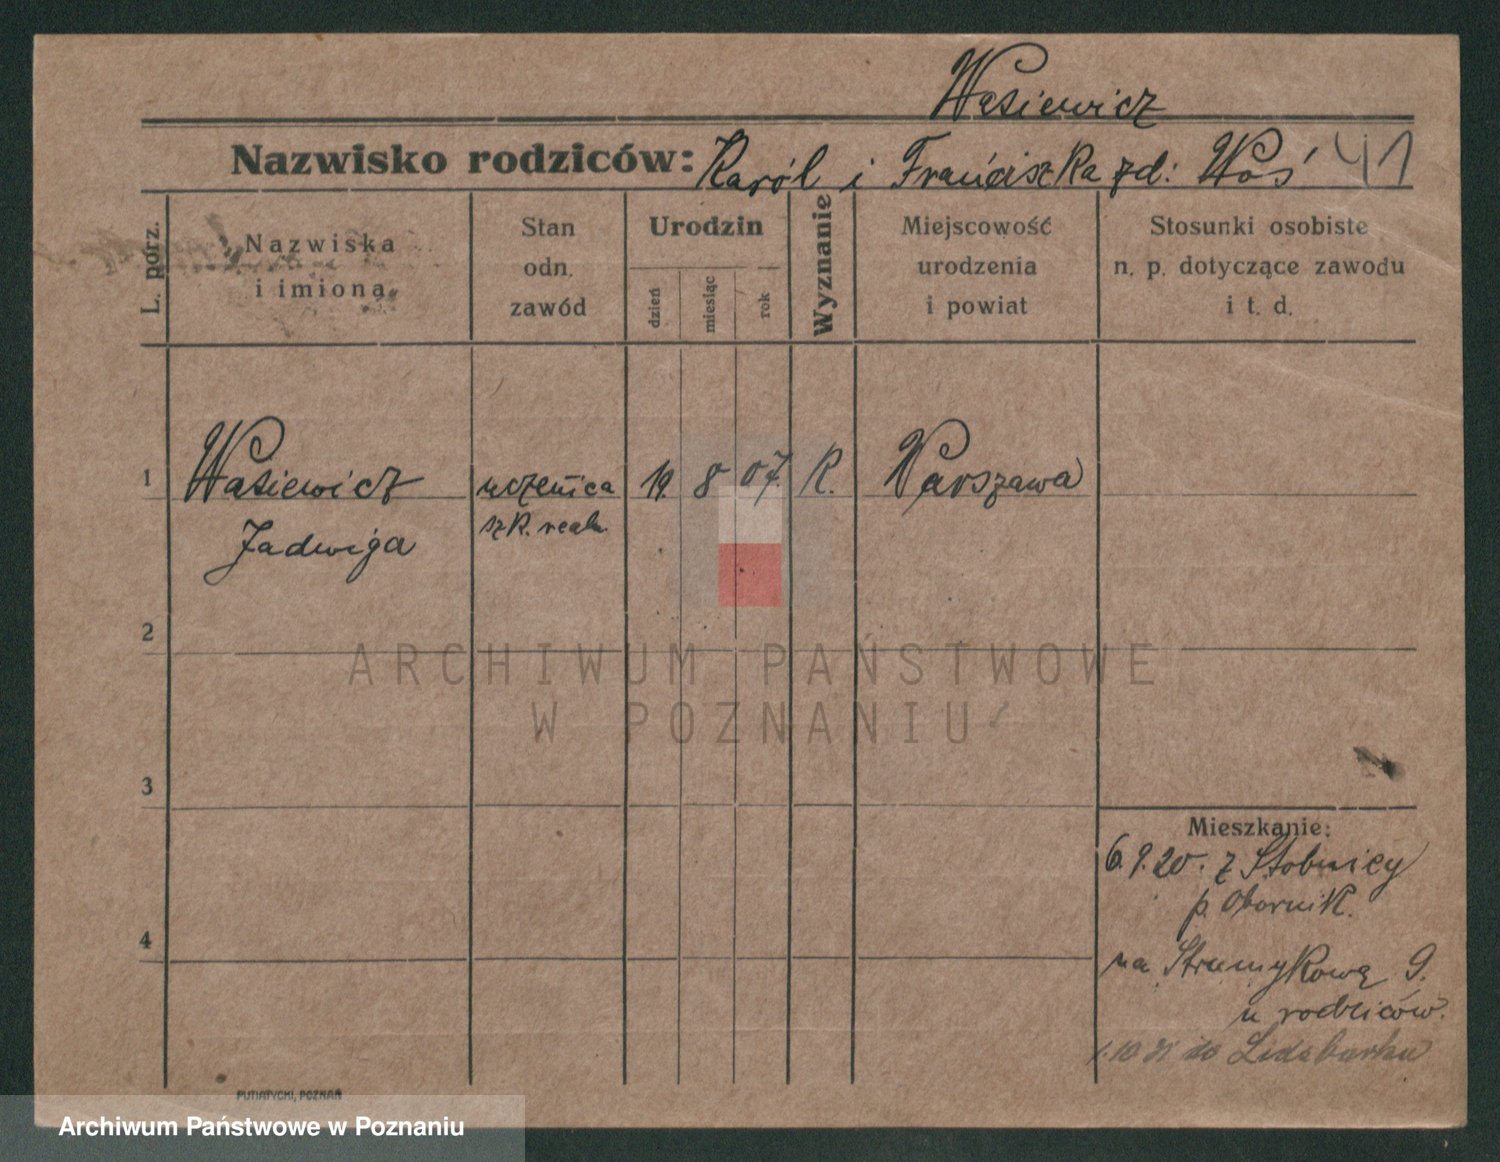 Wasiewicz
Nazwisko rodziców: Karól i Franciszka zd: Woś 41
L. porz.
Nazwiska
i imiona
Stan
odn.
zawód
Urodzin
dzień
miesiąc
rok
Wyznanie
Miejscowość
urodzenia
i powiat
Stosunki osobiste
n. p. dotyczące zawodu
i t. d.
1 Wasiewicz uczenica 19. 8 07. R. Warszawa
Jadwiga szk. real.
2
3
4
Mieszkanie:
6.9.20. z Stobnicy
p. Obornik.
na Strumykową 9.
u rodziców.
do Lidzbarku
PUTIATYCKI, POZNAŃ
ARCHIWUM PAŃSTWOWE
W POZNANIU
Archiwum Państwowe w Poznaniu